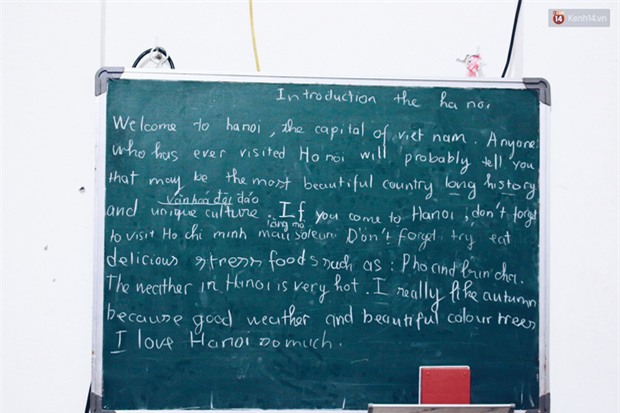 Kenh14.vn
Introduction the ha noi
Welcome to hanoi, the capital of viet nam. Anyone
who has ever visited Ha noi will probably tell you
that may be the most beautiful country long history
văn hoá độc đáo
and unique culture. If you come to Hanoi, don't forget
lăng mộ
to visit Ho chi minh mausoleum Don't forget try eat
delicious stress foods such as : Pho and bun cha.
The weather in Hanoi is very hot. I really like autumn
because good weather and beautiful colour trees
I love Hanoi so much.